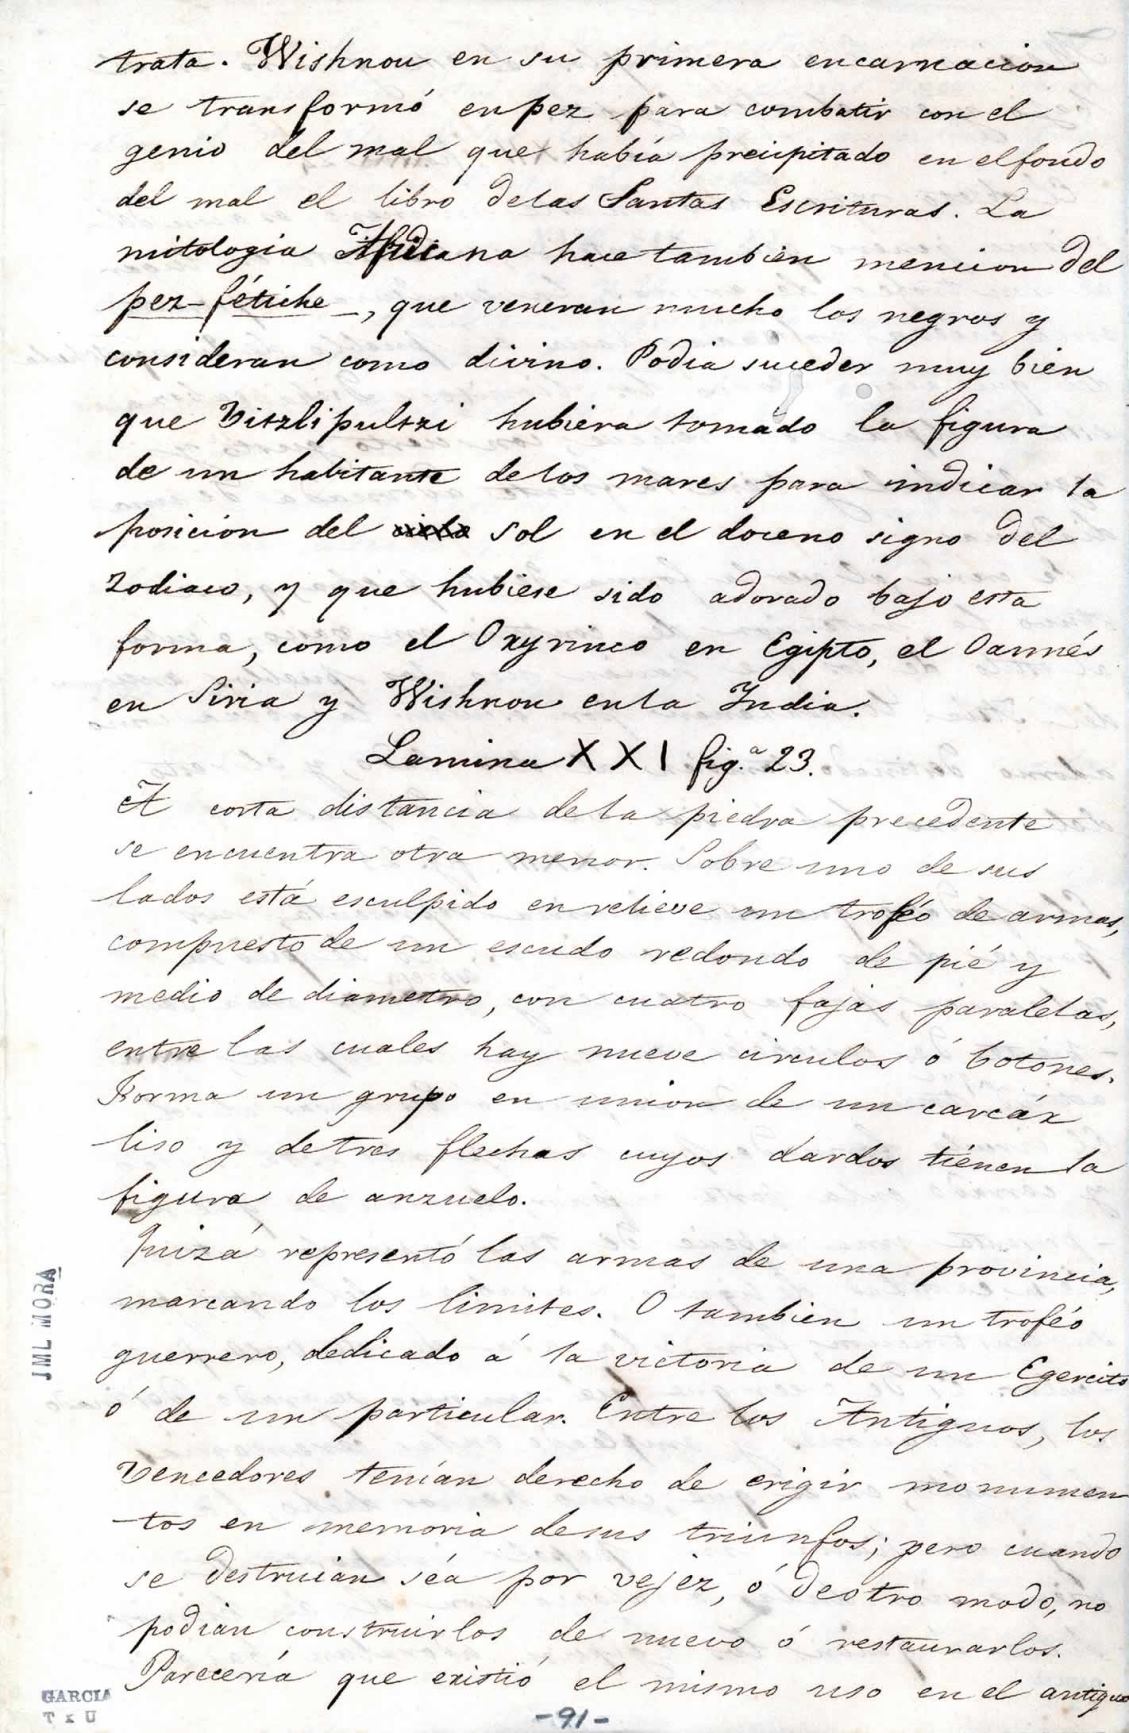 trata. Wishnou en su primera encarnacion
se transformó en pez para combatir con el
genio del mal que había precipitado en el fondo
del mal el libro de las Santas Escrituras. La
mitologia Indiana hace tambien mencion del
pez-fétiche, que veneran mucho los negros y
consideran como divino. Podia suceder muy bien
que Vitzlipultzi hubiera tomado la figura
de un habitante de los mares para indicar la
posicion del sol en el doceno signo del
Zodiaco, y que hubiese sido adorado bajo esta
forma, como el Oxyrinco en Egipto, el Oannés
en Siria y Wishnou en la India.
Lamina XXI fig.ª 23.
A corta distancia de la piedra precedente
se encuentra otra menor. Sobre uno de sus
lados está esculpido en relieve un troféo de armas,
compuesto de un escudo redondo de pié y
medio de diametro, con cuatro fajas paralelas,
entre las cuales hay nueve circulos ó botones.
Forma un grupo en union de un carcáx
liso y de tres flechas cuyos dardos tienen la
figura de anzuelo.
Quizá representó las armas de una provincia,
marcando los limites. O tambien un troféo
guerrero, dedicado á la victoria de un Egercito
ó de un particular. Entre los Antiguos, los
Vencedores tenían derecho de erigir monumen
-tos en memoria de sus triunfos; pero cuando
se destruían séa por vejez, ó de otro modo, no
podían construirlos de nuevo ó restaurarlos.
Parecería que existió el mismo uso en el antiguo
JML MORA
GARCIA
T x U
-91-